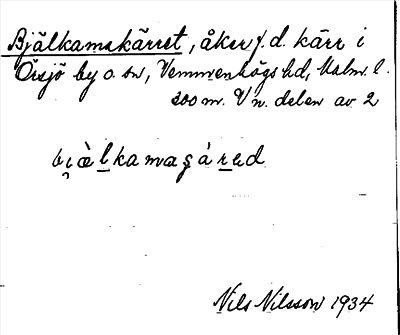 Bjälkamakärret, åker f. d. kärr i
Örsjö by o. sn, Vemmenhögs hd, Malm. l.
200 m. V n. delen av 2
Nils Nilsson 1934